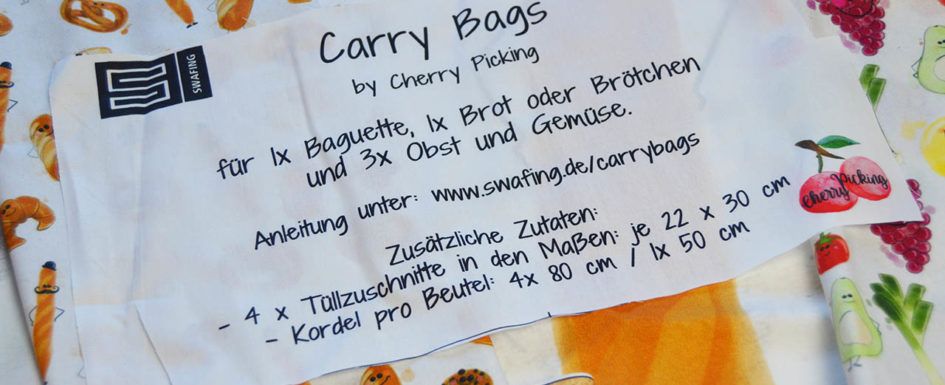 SWAFING
Carry Bags
by Cherry Picking
für 1x Baguette, 1x Brot oder Brötchen
und 3x Obst und Gemüse.
Anleitung unter: www.swafing.de/carrybags
Zusätzliche Zutaten:
- 4 x Tüllzuschnitte in den Maßen: je 22 x 30 cm
- Kordel pro Beutel: 4x 80 cm / 1x 50 cm
cherry Picking